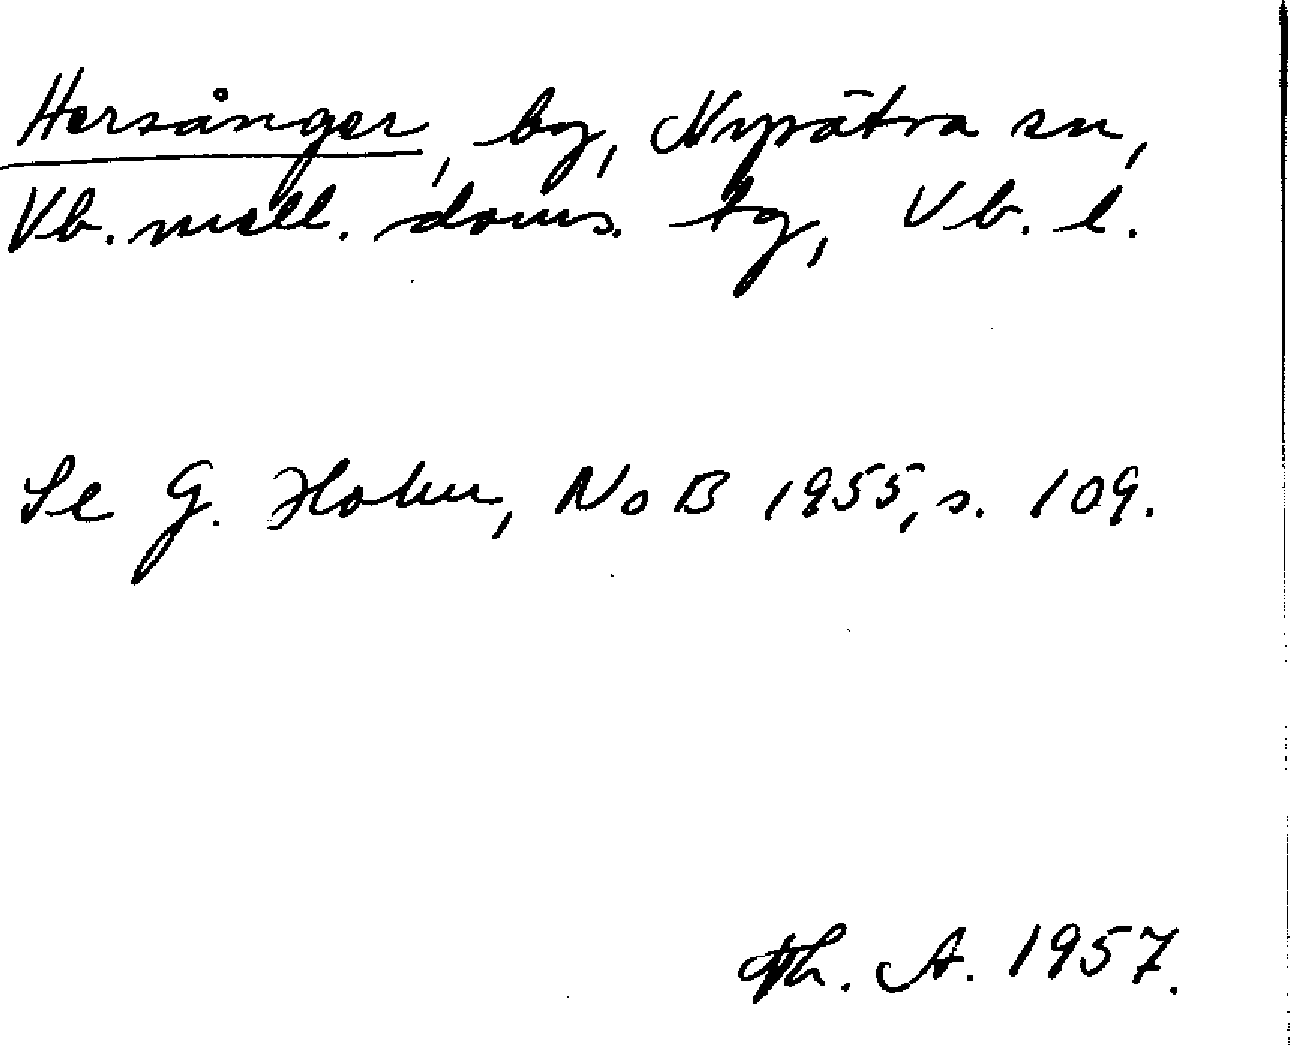 Hersånger, by, Nysätra sn,
Vb. mell. doms. tg, Vb. l.
Se G. Holm, NoB 1955, s. 109.
Th. A. 1957.